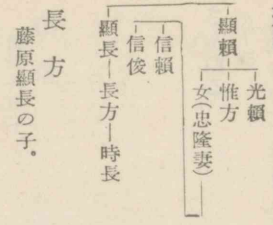 顯賴
光賴
惟方
女(忠隆妻)
信賴
信俊
顯長―長方―時長
長方
藤原顯長の子。